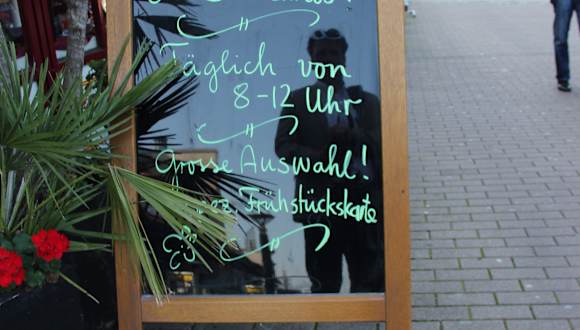 Täglich von
8-12 Uhr
Grosse Auswahl!
Frühstückskarte